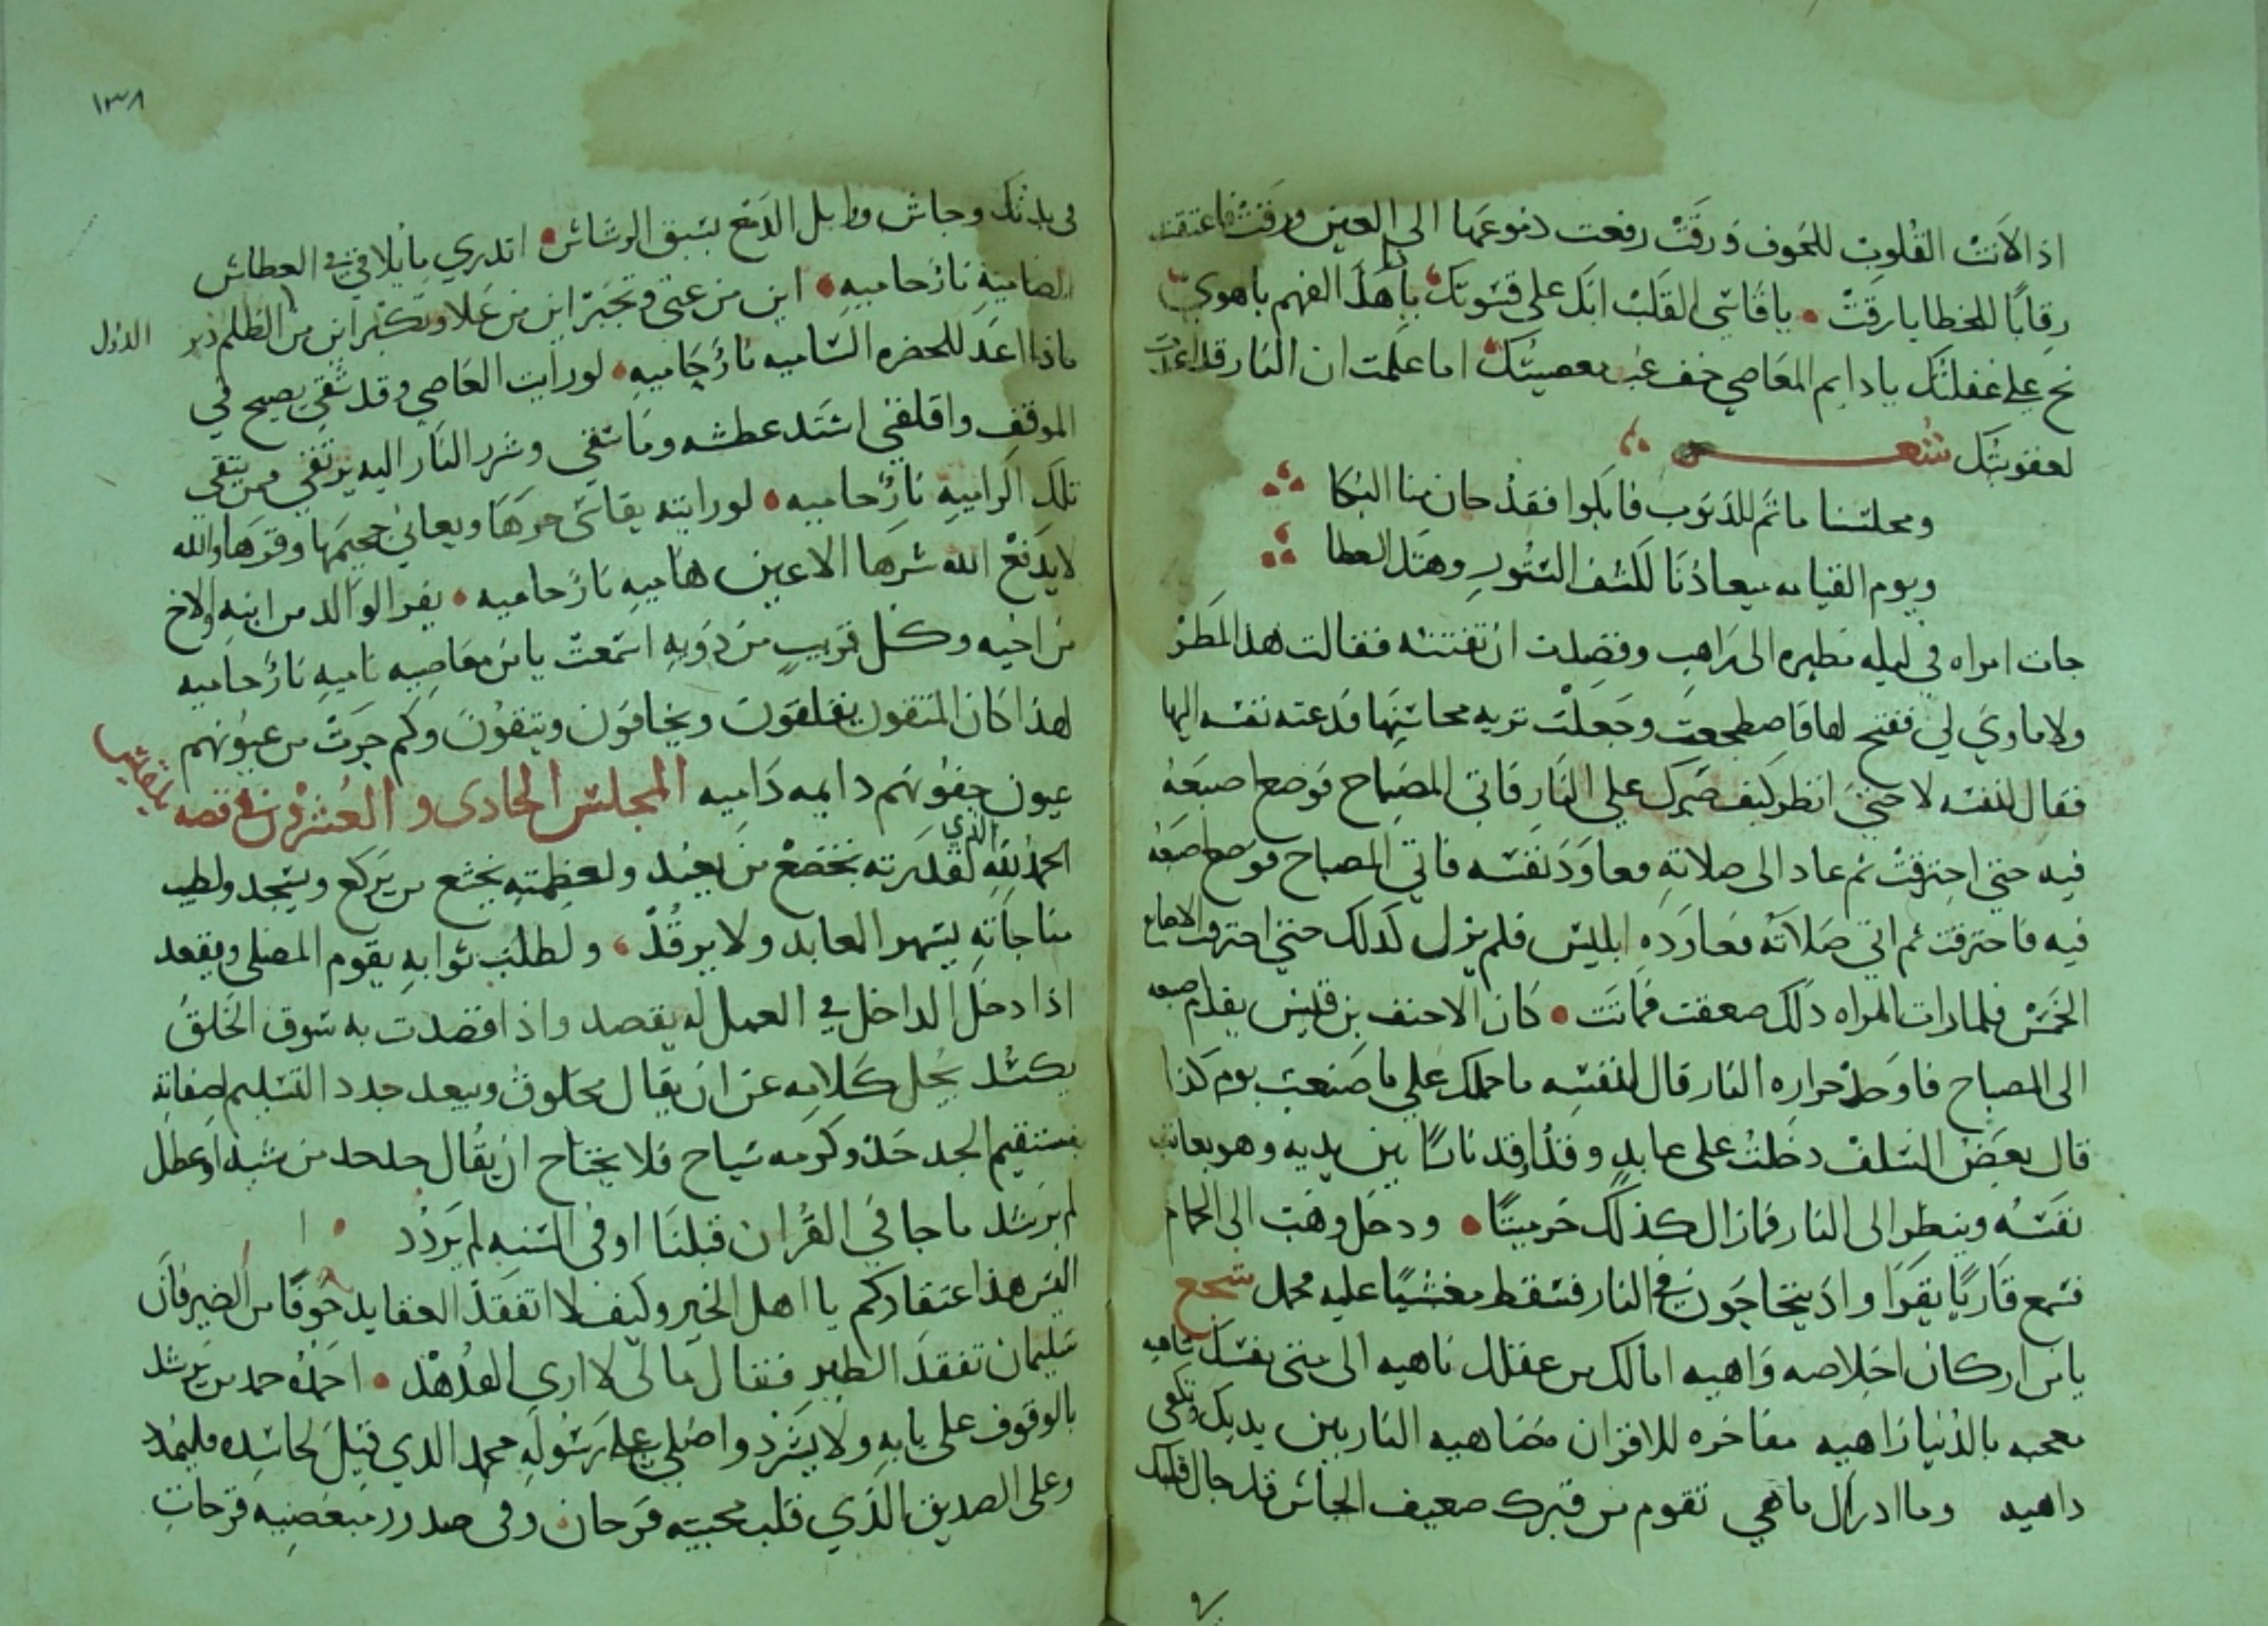 اذا لانت القلوب للخوف ورقت رفعت دموعها الى العين ورقت فاعتقت
رقابا للخطايا رقت يا قاسي القلب ابك على قسوتك يا هذا الفهم بالهوى
نح على غفلتك يا دايم المعاصي خف غب معصيتك اما علمت ان النار قد اعدت
لعقوبتك شعر
ومجلسنا ماتم للذنوب فابكوا فقد حان منا البكا
ويوم القيامه ميعادنا لكشف الستور وهتك الغطا
جات امراه في ليله مطيره الى راهب وقصدت ان تفتنه فقالت هذا المطر
ولا ماوي لي ففتح لها فاضطجعت وجعلت تريه محاسنها فدعته نفسه اليها
فقال لنفسه لا حتى انظر كيف صبرك على النار فاتى المصباح فوضع اصبعه
فيه حتى احترقت ثم عاد الى صلاته فعاودته نفسه فاتى المصباح فوضع اصبعه
فيه فاحترقت ثم اتى صلاته فعاوده ابليس فلم يزل كذلك حتى احترقت الاصابع
الخمس فلما رات المراه ذلك صعقت فماتت كان الاحنف بن قيس يقدم اصبعه
الى المصباح فاذا وجد حراره النار قال لنفسه ما حملك على ما صنعت يوم كذا
قال بعض السلف دخلت على عابد وقد اوقد نارا بين يديه وهو يعاتب
نفسه وينظر الى النار فما زال كذلك خر ميتا ودخل وهب الى الحمام
فسمع قاريا يقرا واذ يتحاجون في النار فسقط مغشيا عليه فحمل سجع
يا من اركان اخلاصه واهيه امالك من عقلك ناهيه الى متى نفسك ساهيه
معجبه بالدنيا زاهيه مفاخره للاقران مضاهيه النار بين يديك وتكفي
داهيه وما ادراك ماهي تقوم من قبرك ضعيف الجاش قد جال قلبك
١٣٨
في بدنك وجاش وابل الدمع يسبق الرشاش اتدري ما يلاقي العطاش
الظاميه نار حاميه اين من عتى وتجبر اين من علا وتكبر اين من للظلم دبر
الدول
ماذا اعد للحضره الساميه نار حاميه لو رايت العاصي وقد شقي يصيح في
الموقف واقلقي اشتد عطشه وما سقي وشرر النار اليه يرتقي فمن يتقي
تلك الراميه نار حاميه لو رايته يقاسي حرها ويعاني جحيمها وقرها والله
لا يدفع الله شرها الا عين هاميه نار حاميه يفر الوالد من ابنه والاخ
من اخيه وكل قريب من ذويه اسمعت يا من معاصيه ناميه نار حاميه
لهذا كان المتقون يقلقون ويخافون ويتقون وكم جرت من عيونهم
عيون جفونهم دايمه داميه المجلس الحادى والعشرون في قصه بلقيس
الحمد لله الذي لقدرته يخضع من يعبد ولعظمته يخشع من يركع ويسجد ولطيب
مناجاته يسهر العابد ولا يرقد ولطلب ثوابه يقوم المصلى ويقعد
اذا دخل الداخل في العمل له يقصد واذا قصدت به سوق الخلق
يكسد يجل كلامه عن ان يقال مخلوق ويبعد جدد التسليم لصفاته
مستقيم الجدد وكرمه سياح فلا يحتاج ان يقال من شبه او عطل
لم يرشد ما جا في القران قبلنا او في السنه لم يردد
اليس هذا اعتقادكم يا اهل الخير وكيف لا اتفقد العقايد خوفا من الضير فان
سليمان تفقد الطير فقال مالي لا ارى الهدهد احمده حمد من يرشد
بالوقوف على بابه ولا يشرد واصلي على رسوله محمد الذي قيل لحاسده فليمدد
وعلى الصديق الذي قلب محبيه فرحان وفى صدور مبغضيه قرحات